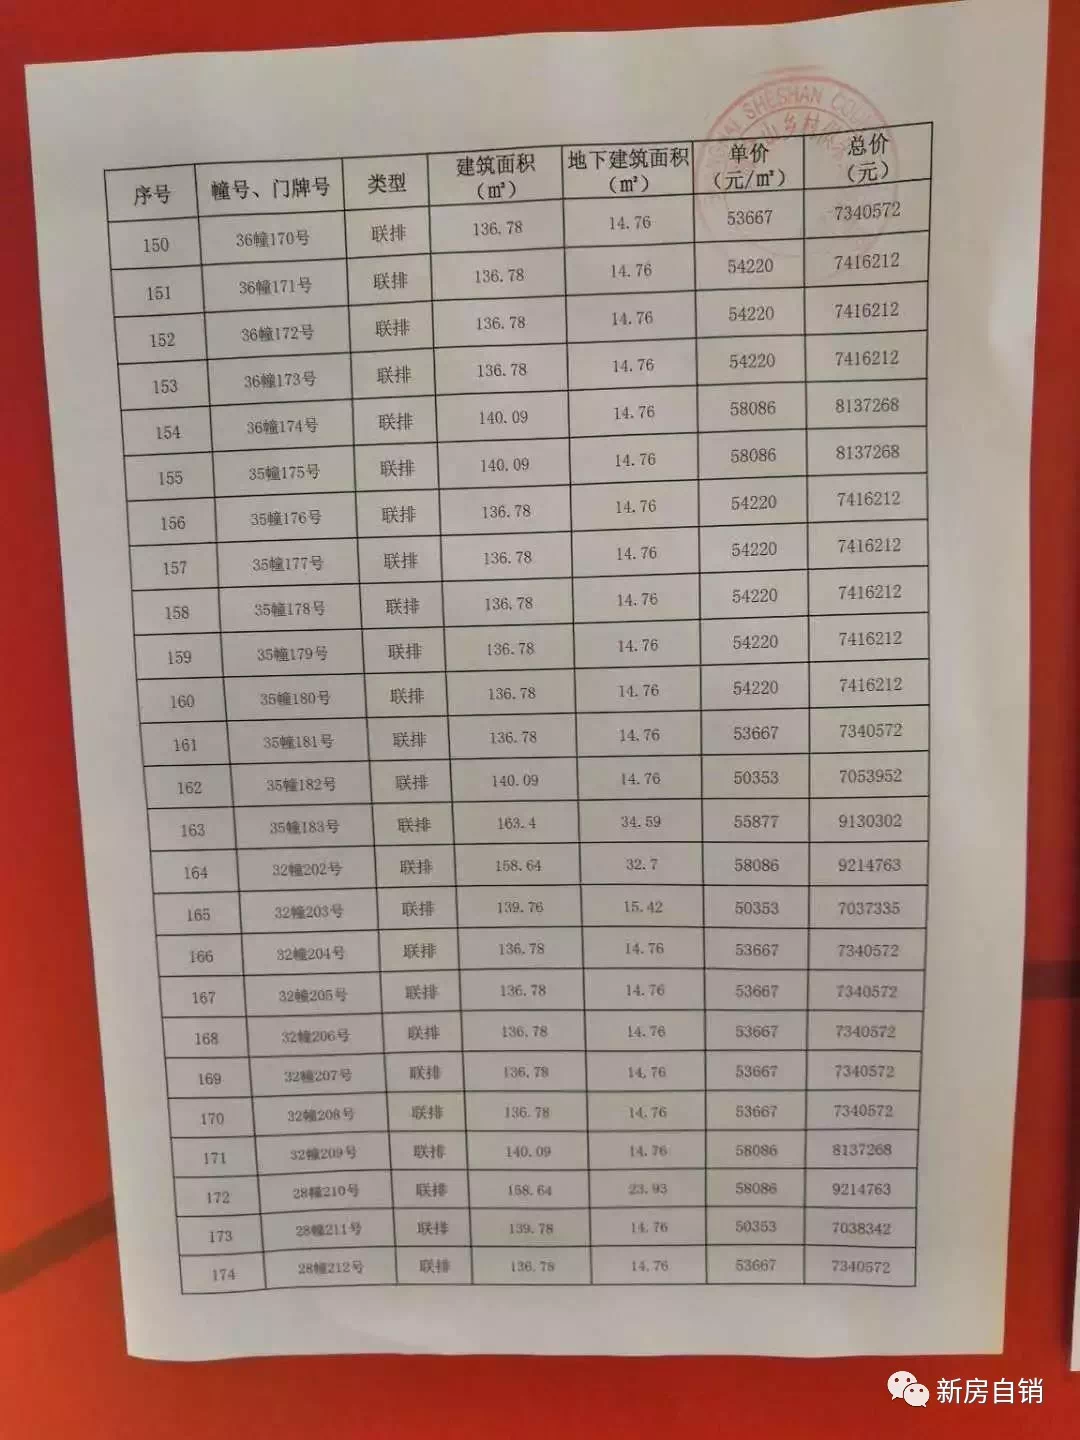 SHESHAN COU
山乡村
序号 幢号、门牌号 类型 建筑面积(㎡) 地下建筑面积(㎡) 单价(元/㎡) 总价(元)
150 36幢170号 联排 136.78 14.76 53667 7340572
151 36幢171号 联排 136.78 14.76 54220 7416212
152 36幢172号 联排 136.78 14.76 54220 7416212
153 36幢173号 联排 136.78 14.76 54220 7416212
154 36幢174号 联排 140.09 14.76 58086 8137268
155 35幢175号 联排 140.09 14.76 58086 8137268
156 35幢176号 联排 136.78 14.76 54220 7416212
157 35幢177号 联排 136.78 14.76 54220 7416212
158 35幢178号 联排 136.78 14.76 54220 7416212
159 35幢179号 联排 136.78 14.76 54220 7416212
160 35幢180号 联排 136.78 14.76 54220 7416212
161 35幢181号 联排 136.78 14.76 53667 7340572
162 35幢182号 联排 140.09 14.76 50353 7053952
163 35幢183号 联排 163.4 34.59 55877 9130302
164 32幢202号 联排 158.64 32.7 58086 9214763
165 32幢203号 联排 139.76 15.42 50353 7037335
166 32幢204号 联排 136.78 14.76 53667 7340572
167 32幢205号 联排 136.78 14.76 53667 7340572
168 32幢206号 联排 136.78 14.76 53667 7340572
169 32幢207号 联排 136.78 14.76 53667 7340572
170 32幢208号 联排 136.78 14.76 53667 7340572
171 32幢209号 联排 140.09 14.76 58086 8137268
172 28幢210号 联排 158.64 23.93 58086 9214763
173 28幢211号 联排 139.78 14.76 50353 7038342
174 28幢212号 联排 136.78 14.76 53667 7340572
新房自销